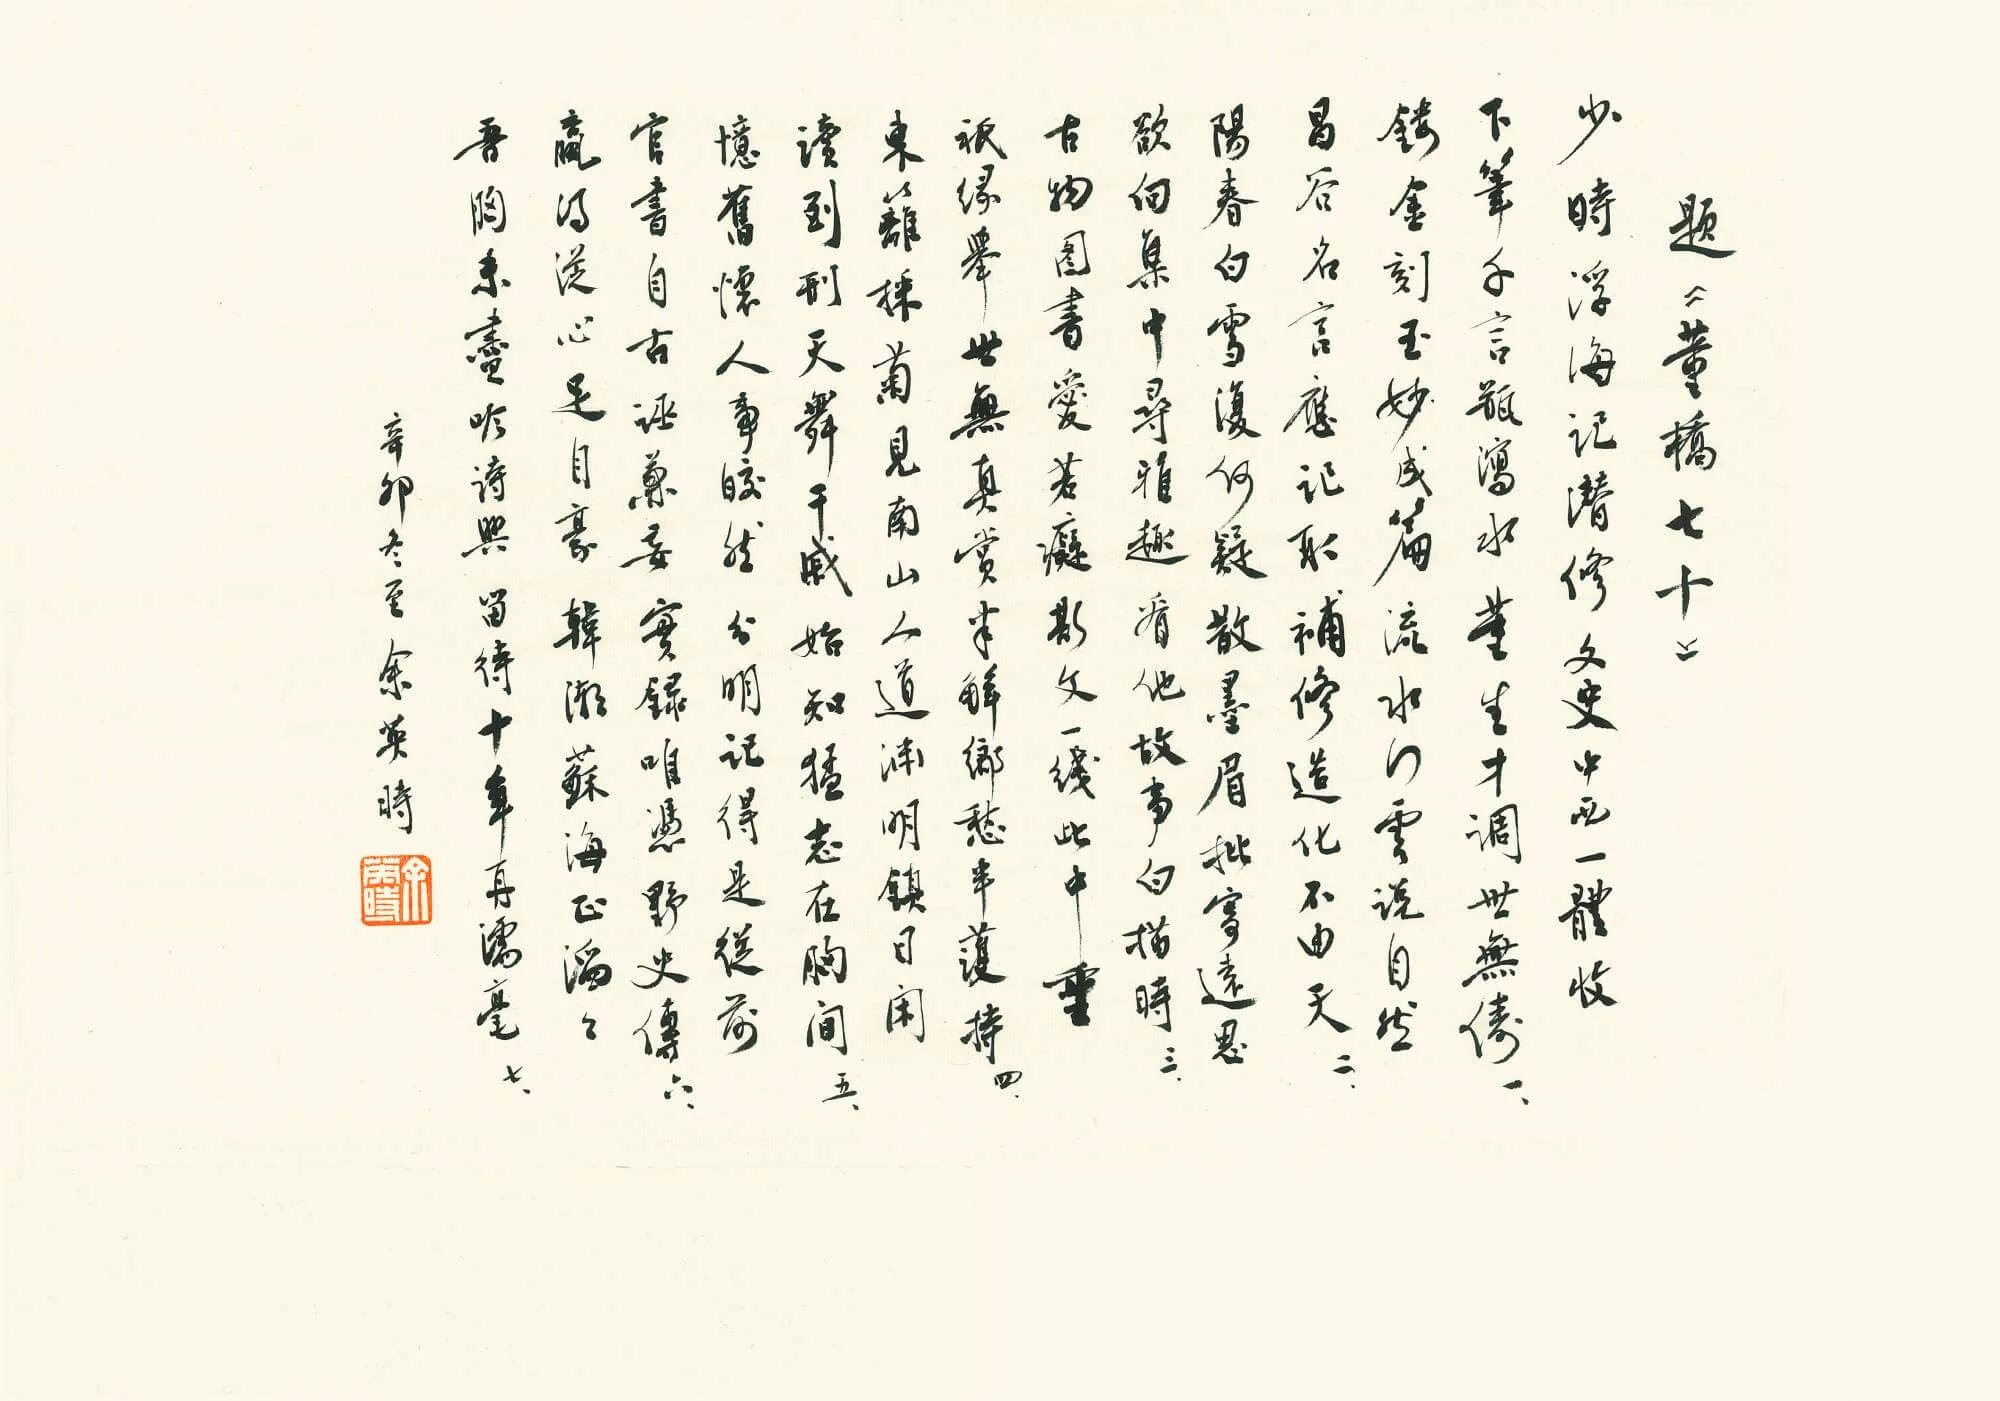 題《董橋七十》
少時浮海記潛修文史中西一體收
下筆千言瓶瀉水董生才調世無儔 一、
鏤金刻玉妙成篇流水行雲說自然
昌谷名言應記取補修造化不由天 二、
陽春白雪復何疑散墨眉批寄遠思
欲向集中尋雅趣看他故事白描時 三、
古物圖書愛若癡斯文一綫此中垂
祇緣舉世無真賞半解鄉愁半護持 四、
東籬採菊見南山人道淵明鎮日閑
讀到刑天舞干戚始知猛志在胸間 五、
憶舊懷人事皎然分明記得是從前
官書自古誣兼妄實錄唯憑野史傳 六、
贏得從心足自豪韓潮蘇海正滔々
吾胸未盡吟詩興留待十年再濡毫 七、
辛卯冬至余英時
余英時